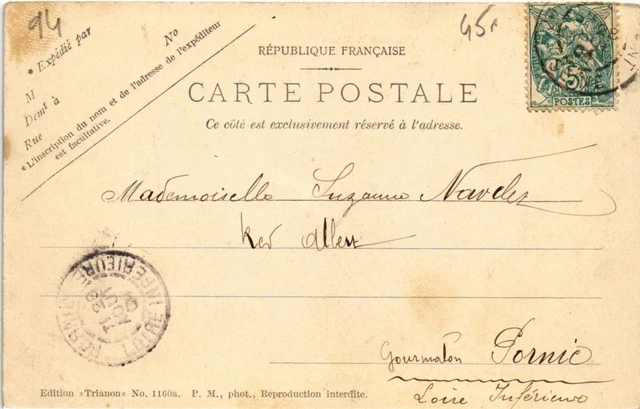 94
45
* Expédié par
No
M
Demt à
Rue
*L'inscription du nom et de l'adresse de l'expéditeur
est facultative.
RÉPUBLIQUE FRANÇAISE
CARTE POSTALE
Ce côté est exclusivement réservé à l'adresse.
5
POSTES
Mademoiselle Suzanne
Ker Albert
LOIRE INFÉRIEURE
Gourmalon Pornic
Loire Inférieure
Edition »Trianon« No. 1160a. P. M., phot., Reproduction interdite.